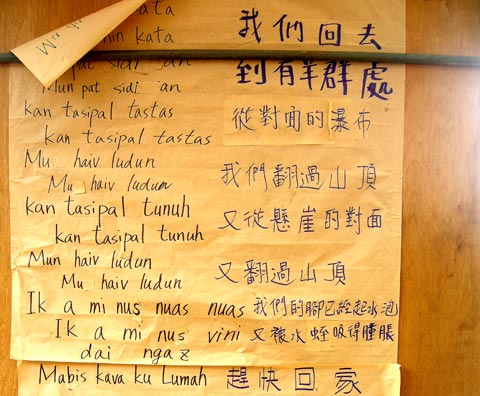 kata
nin kata 我們回去
pat sidi an 到有羊群處
Mun pat sidi an
kan tasipal tastas 從對面的瀑布
kan tasipal tastas
Mu haiv ludun
Mu haiv ludun 我們翻過山頂
kan tasipal tunuh
kan tasipal tunuh 又從懸崖的對面
Mun haiv ludun
Mu haiv ludun 又翻過山頂
Ik a mi nus nuas nuas 我們的腳已經起水泡
Ik a mi nus vini 又被水蛭吸得腫脹
dai ngaz
Mabis kava ku Lumah 趕快回家